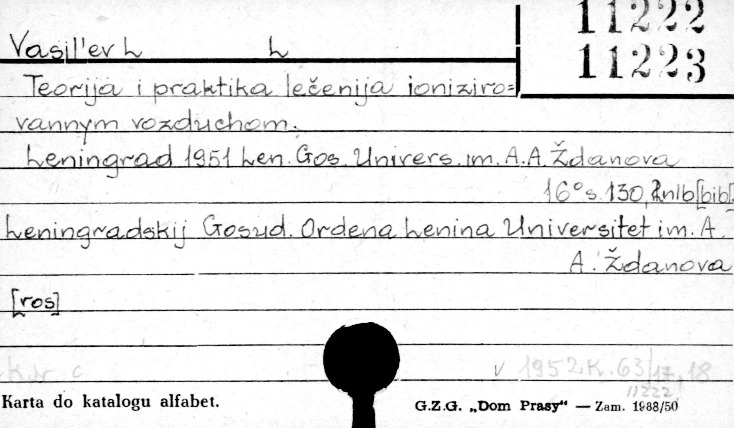 11222
Vasil'ev L L
11223
Teorija i praktika lečenija ioniziro=
vannym vozduchom.
Leningrad 1951 Len. Gos. Univers. im. A.A. Ždanova
16° s. 130, nlb [bib].
Leningradskij Gosud. Ordena Lenina Universitet im. A.
A. Ždanova
[ros]
v 1952.K.63/17, 18
11222
Karta do katalogu alfabet.
G.Z.G. „Dom Prasy“ — Zam. 1988/50